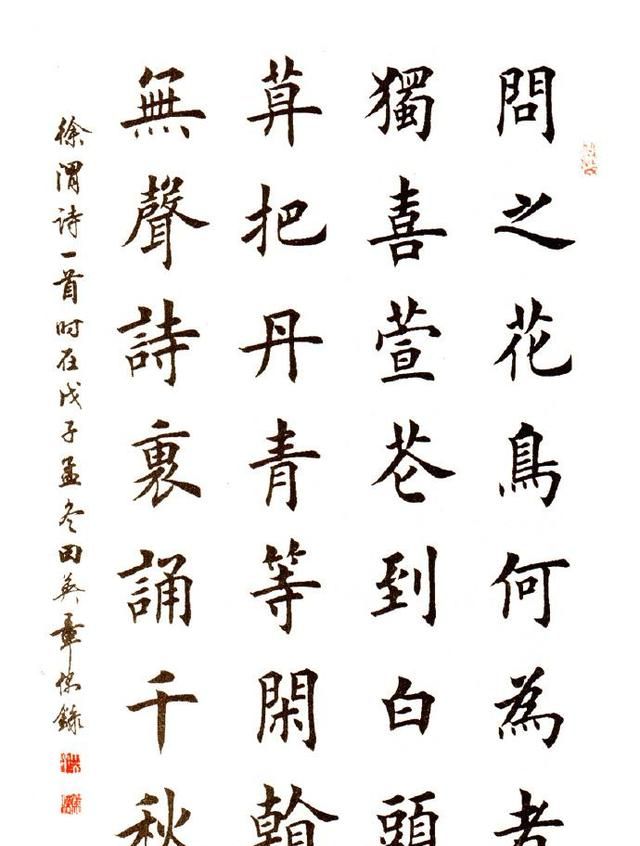 問之花鳥何為者
獨喜萱花到白頭
莫把丹青等閑
無聲詩裏誦千秋
徐渭诗一首时在戊子孟冬田英章錄